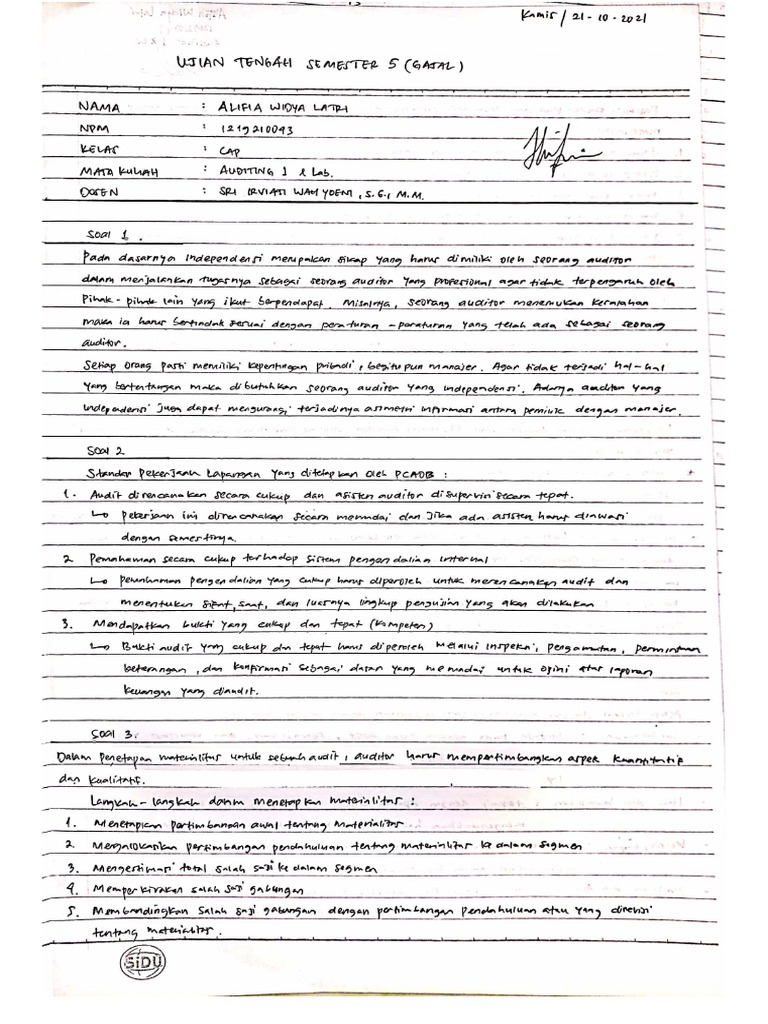 Kamis / 21-10-2021
UJIAN TENGAH SEMESTER 5 (GASAL)
NAMA : ALIFIA WIDYA LATRI
NPM : 1219210093
KELAS : CAP
MATA KULIAH : AUDITING I & Lab.
DOSEN : SRI IRVIATI WAHYOENI, S.E., M.M.
Soal 1.
Pada dasarnya independensi merupakan sikap yang harus dimiliki oleh seorang auditor
dalam menjalankan tugasnya sebagai seorang auditor yang profesional agar tidak terpengaruh oleh
pihak-pihak lain yang ikut berpendapat. Misalnya, seorang auditor menemukan kesalahan
maka ia harus bertindak sesuai dengan peraturan-peraturan yang telah ada sebagai seorang
auditor.
Setiap orang pasti memiliki kepentingan pribadi, begitupun manajer. Agar tidak terjadi hal-hal
yang bertentangan maka dibutuhkan seorang auditor yang independensi. Adanya auditor yang
independensi juga dapat mengurangi terjadinya asimetri informasi antara pemilik dengan manajer.
Soal 2
Standar Pekerjaan Lapangan yang ditetapkan oleh PCAOB :
1. Audit direncanakan secara cukup dan asisten auditor disupervisi secara tepat.
↳ Pekerjaan ini direncanakan secara memadai dan jika ada asisten harus diawasi
dengan semestinya.
2 Pemahaman secara cukup terhadap sistem pengendalian internal
↳ Pemahaman pengendalian yang cukup harus diperoleh untuk merencanakan audit dan
menentukan sifat, saat, dan luasnya lingkup pengujian yang akan dilakukan
3. Mendapatkan bukti yang cukup dan tepat (kompeten)
↳ Bukti audit yang cukup dan tepat harus diperoleh melalui inspeksi, pengamatan, permintaan
keterangan, dan konfirmasi sebagai dasar yang memadai untuk opini atas laporan
keuangan yang diaudit.
Soal 3.
Dalam penetapan materialitas untuk sebuah audit, auditor harus mempertimbangkan aspek kuantitatif
dan kualitatif.
Langkah-langkah dalam menetapkan materialitas :
1. Menetapkan pertimbangan awal tentang materialitas
2. Mengalokasikan pertimbangan pendahuluan tentang materialitas ke dalam segmen
3. Mengestimasi total salah saji ke dalam segmen
4. Memperkirakan salah saji gabungan
5. Membandingkan salah saji gabungan dengan pertimbangan pendahuluan atau yang direvisi
tentang materialitas.
SiDU